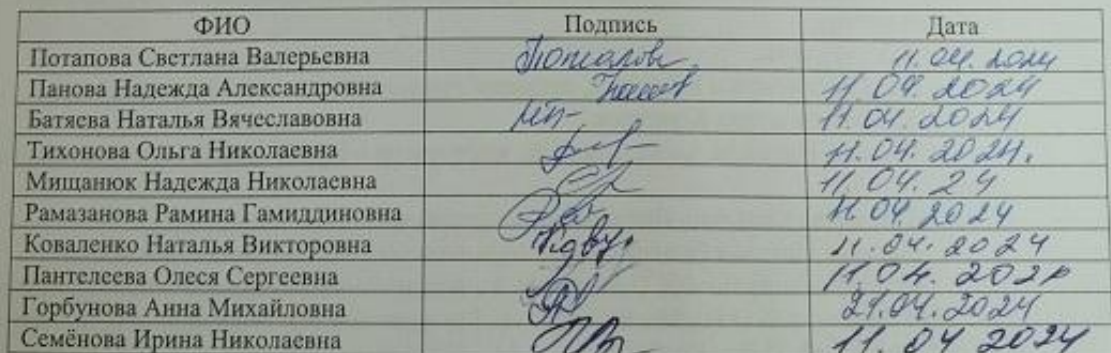 ФИО Подпись Дата
Потапова Светлана Валерьевна 11.04.2024
Панова Надежда Александровна 11 04 2024
Батяева Наталья Вячеславовна 11.04.2024
Тихонова Ольга Николаевна 11.04.2024.
Мищанюк Надежда Николаевна 11.04.24
Рамазанова Рамина Гамиддиновна 11.04.2024
Коваленко Наталья Викторовна 11.04.2024
Пантелеева Олеся Сергеевна 11.04.202
Горбунова Анна Михайловна 21.04.2024
Семёнова Ирина Николаевна 11.04 2024